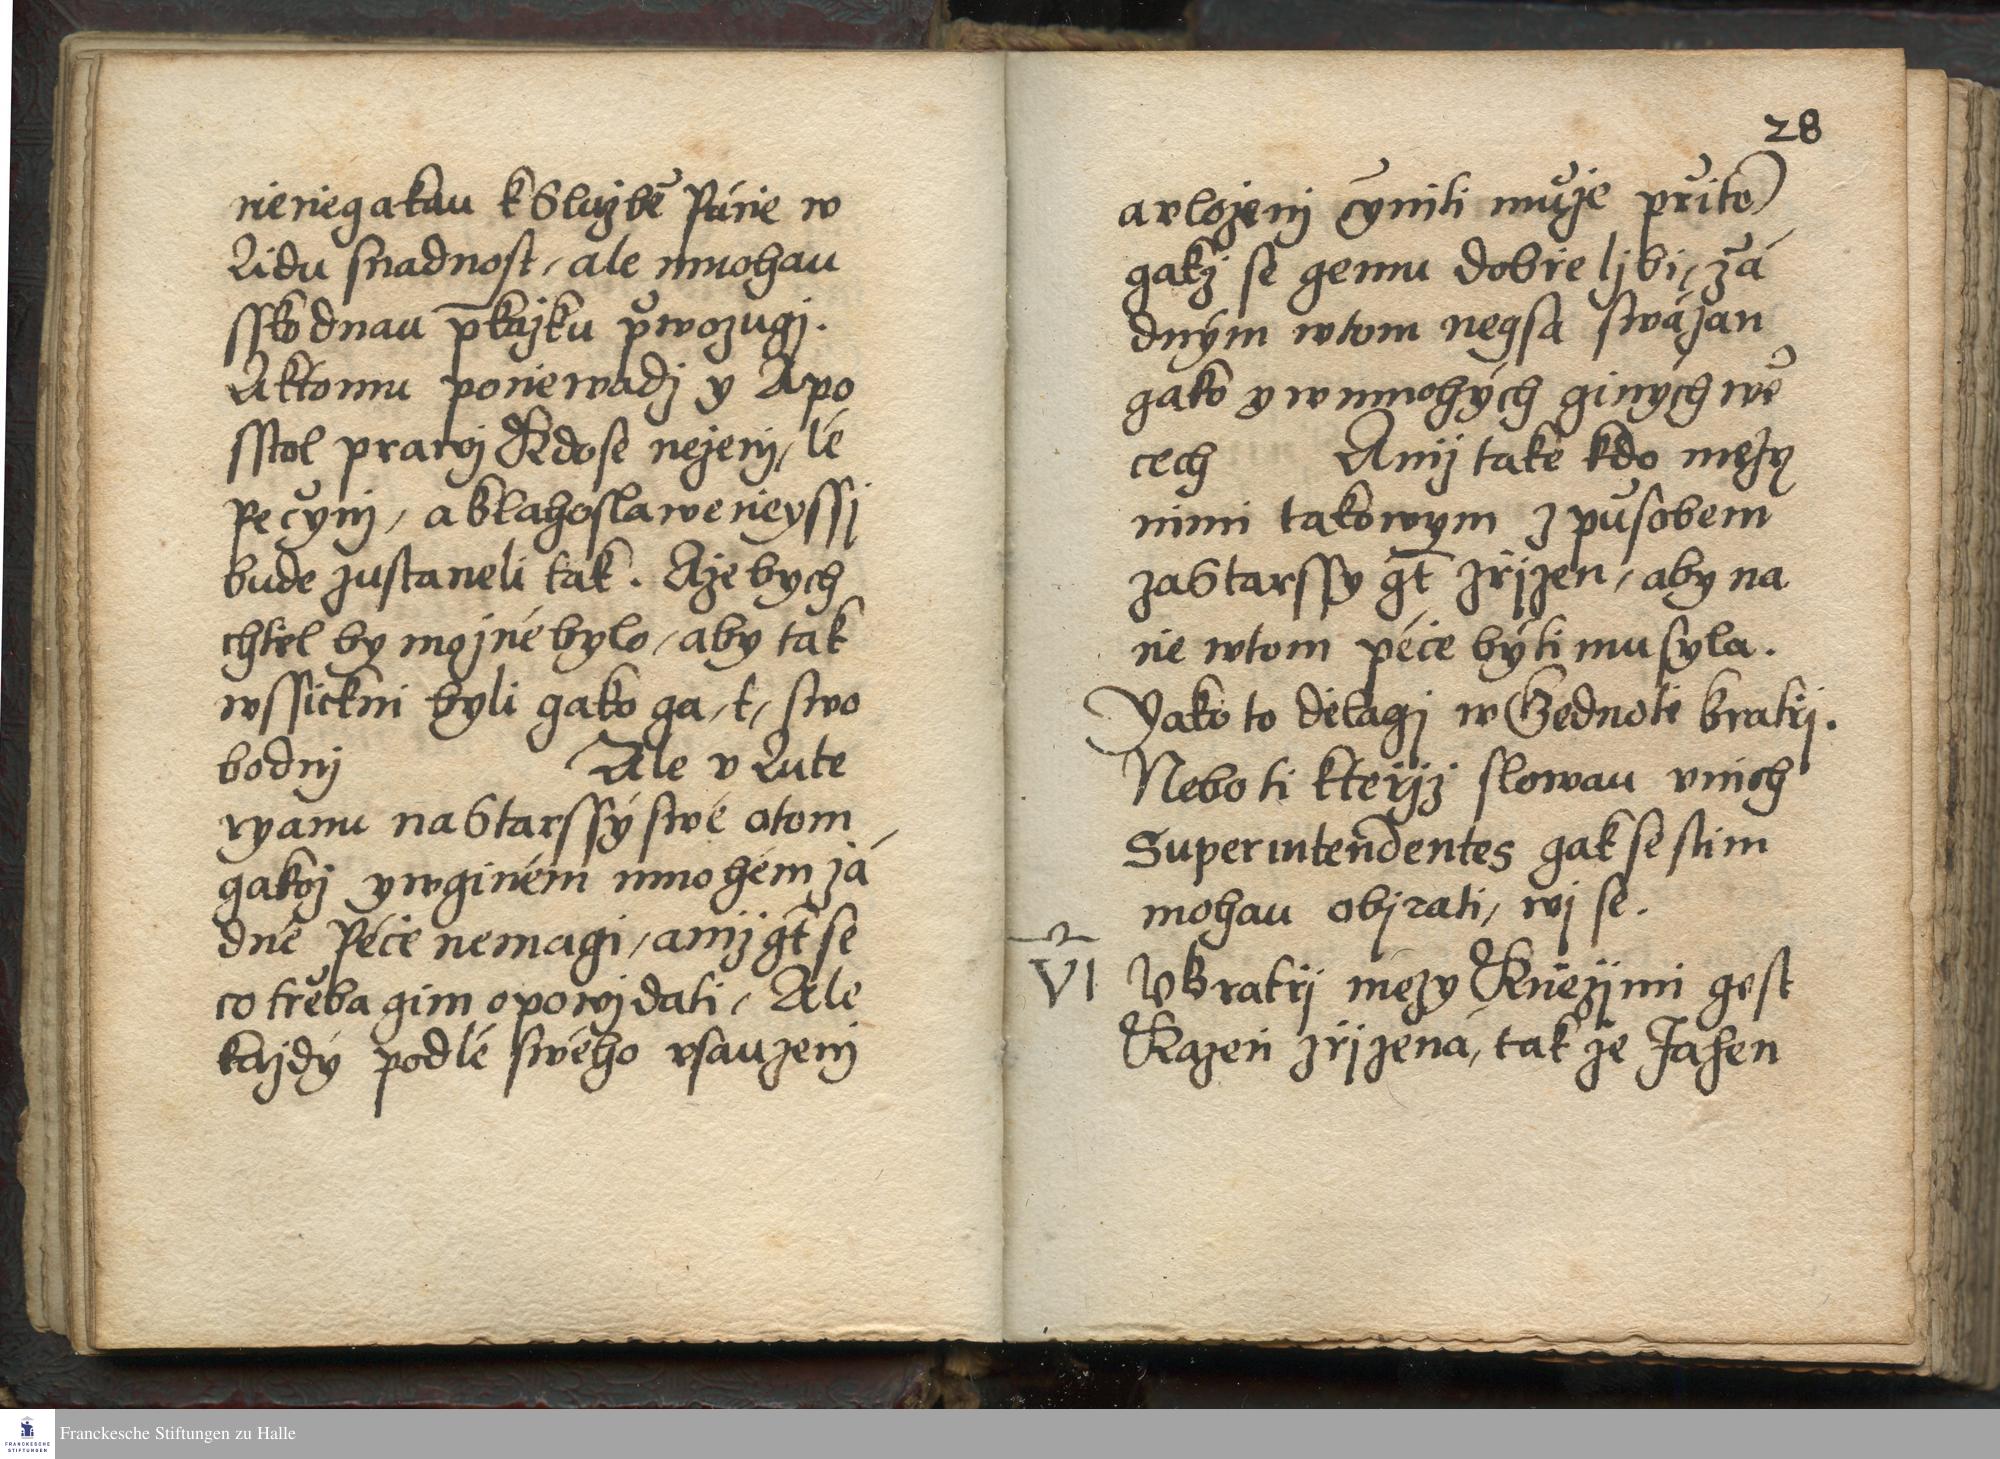 nieniegakau k Službě Pánie w
Lidu snadnost, ale mnohau
sskodnau p̄kážku půwozugj.
Aktomu poniewadž y Apo
sstol prawj Kdose neženj, lé
Pe čynj, a Blahoslaweneyssj
bude zustaneli tak. Aže bych
chtěl by možné bylo, aby tak
wssickni byli gako ga, t, swo
bodnj Ale v Lute
ryanu na Starssýstwé otom
gakož y wginém mnohém žá
dné Péče nemagi, anij gt̄ se
co třeba gim opowjdati, Ale
každý podlé swého vsauzenj
28
a vloženj čyniti může při tō
gakž se gemu dobře ljbi, žá
dným wtom negsa swázan
gako y w mnohých giných wě
cech Anij také kdo mezy
nimi takowym zpusobem
za Starssy gt̄ zřjzen, aby na
ně wtom péče býti musyla.
Yako to dělagj w Gednotě bratřj.
Nebo ti kteřjž slowau vnich
Superintendentes gak se stim
mohau objrati, wj se.
VI
V Bratřj mezy Kněžjmi gest
Kázeň zřjzená, tak že Jáhen
Franckesche Stiftungen zu Halle
FRANCKESCHE
STIFTUNGEN